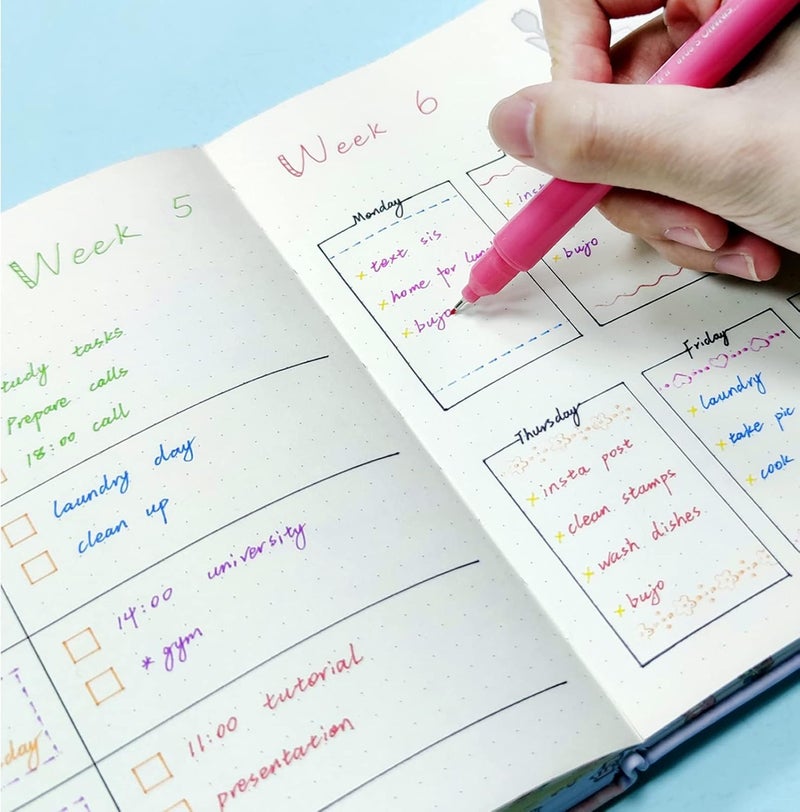 Week 5
Prepare calls
18:00 call
laundry day
clean up
14:00 university
* gym
11:00 tutorial
presentation
Week 6
Monday
text sis
home for
bujo
bujo
Thursday
insta post
clean stamps
wash dishes
bujo
Friday
laundry
take pic
cook